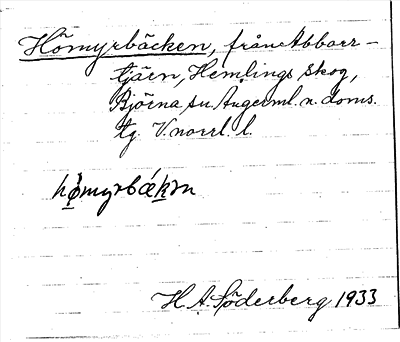 Hömyrbäcken, från Abborr-
tjärn, Hemlings skog,
Björna sn. Ångerml. n. doms.
tg. V.norrl. l.
hömyrbækɜn
H. A. Söderberg 1933